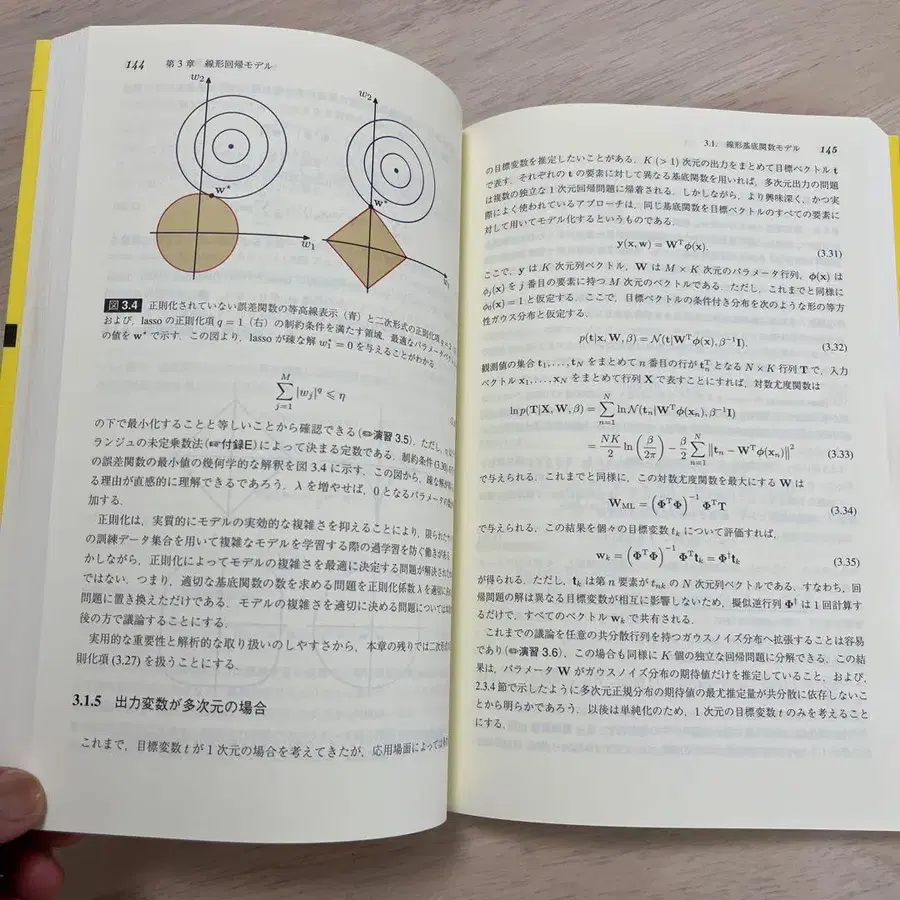 144 第 3 章 線形回帰モデル
w₂
w₂
w*
w*
w₁
w₁
図 3.4 正則化されていない誤差関数の等高線表示(青)と二次形式の正則化項
および,lasso の正則化項 q = 1(右)の制約条件を満たす領域.最適なパラメータ
の値を w* で示す.この図より,lasso が疎な解 w₁* = 0 を与えることがわかる.
∑_{j=1}^{M} |w_j|^q ⩽ η
の下で最小化することと等しいことから確認できる(✏演習 3.5).ただし,
ランジュの未定乗数法(☛付録E)によって決まる定数である.制約条件 (3.30)
の誤差関数の最小値の幾何学的な解釈を図 3.4 に示す.この図から,疎な解が
る理由が直感的に理解できるであろう.λ を増やせば,0 となるパラメータの数
加する.
正則化は,実質的にモデルの実効的な複雑さを抑えることにより,限られた
の訓練データ集合を用いて複雑なモデルを学習する際の過学習を防ぐ働きがある.
かしながら,正則化によってモデルの複雑さを最適に決定する問題が解決された
ではない.つまり,適切な基底関数の数を求める問題を正則化係数 λ を適切に
問題に置き換えただけである.モデルの複雑さを適切に決める問題については
後の方で議論することにする.
実用的な重要性と解析的な取り扱いのしやすさから,本章の残りでは二次
則化項 (3.27) を扱うことにする.
3.1.5 出力変数が多次元の場合
これまで,目標変数 t が 1 次元の場合を考えてきたが,応用場面によっては
3.1. 線形基底関数モデル 145
の目標変数を推定したいことがある.K (> 1) 次元の出力をまとめて目標ベクトル t
で表す.それぞれの t の要素に対して異なる基底関数を用いれば,多次元出力の問題
は複数の独立な 1 次元回帰問題に帰着される.しかしながら,より興味深く,かつ実
際によく使われているアプローチは,同じ基底関数を目標ベクトルのすべての要素に
対して用いてモデル化するというものである.
y(x, w) = Wᵀϕ(x). (3.31)
ここで,y は K 次元列ベクトル,W は M × K 次元のパラメータ行列,ϕ(x) は
ϕ_j(x) を j 番目の要素に持つ M 次元のベクトルである.ただし,これまでと同様に
ϕ₀(x) = 1 と仮定する.ここで,目標ベクトルの条件付き分布を次のような形の等方
性ガウス分布と仮定する.
p(t|x, W, β) = 𝒩(t|Wᵀϕ(x), β⁻¹I). (3.32)
観測値の集合 t₁, . . . , t_N をまとめて n 番目の行が t_nᵀ となる N × K 行列 T で,入力
ベクトル x₁, . . . , x_N をまとめて行列 X で表すことにすれば,対数尤度関数は
ln p(T|X, W, β) = ∑_{n=1}^{N} ln 𝒩(t_n|Wᵀϕ(x_n), β⁻¹I)
= NK/2 ln (β/2π) − β/2 ∑_{n=1}^{N} ‖t_n − Wᵀϕ(x_n)‖² (3.33)
で与えられる.これまでと同様に,この対数尤度関数を最大にする W は
W_ML = (ΦᵀΦ)⁻¹ ΦᵀT (3.34)
で与えられる.この結果を個々の目標変数 t_k について評価すれば,
w_k = (ΦᵀΦ)⁻¹ Φᵀt_k = Φ†t_k (3.35)
が得られる.ただし,t_k は第 n 要素が t_nk の N 次元列ベクトルである.すなわち,回
帰問題の解は異なる目標変数が相互に影響しないため,擬似逆行列 Φ† は 1 回計算す
るだけで,すべてのベクトル w_k で共有される.
これまでの議論を任意の共分散行列を持つガウスノイズ分布へ拡張することは容易
であり(✏演習 3.6),この場合も同様に K 個の独立な回帰問題に分解できる.この結
果は,パラメータ W がガウスノイズ分布の期待値だけを推定していること,および,
2.3.4 節で示したように多次元正規分布の期待値の最尤推定量が共分散に依存しないこ
とから明らかであろう.以後は単純化のため,1 次元の目標変数 t のみを考えること
にする.